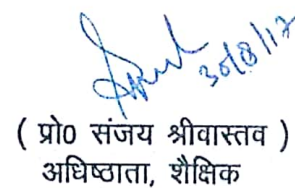 30/8/17
( प्रो0 संजय श्रीवास्तव )
अधिष्ठाता, शैक्षिक